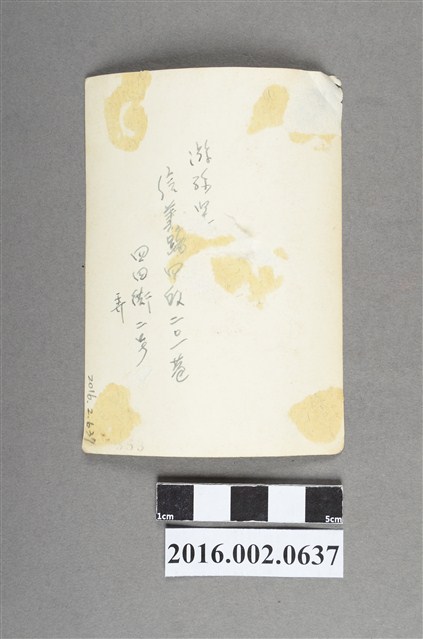 游弥堅
信義路四段二〇一巷
四四街二号
弄
2016.2.637
1cm
5cm
2016.002.0637